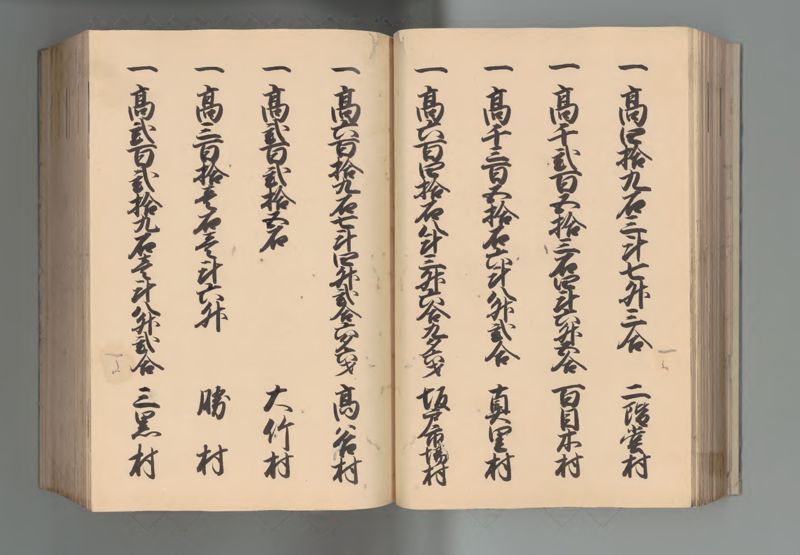 一 高四拾九石三斗七升三合 二階堂村
一 高千弐百五拾三石四斗六升五合 百目木村
一 高千三百五拾石六斗八升弐合 真里村
一 高六百四拾石八斗三升六合九夕六才 坂戸市場村
一 高六百拾九石七斗四升弐合六夕六才 高谷村
一 高弐百弐拾五石 大竹村
一 高三百拾壱石壱斗六升 勝村
一 高弐百弐拾九石壱斗八升弐合 三黒村